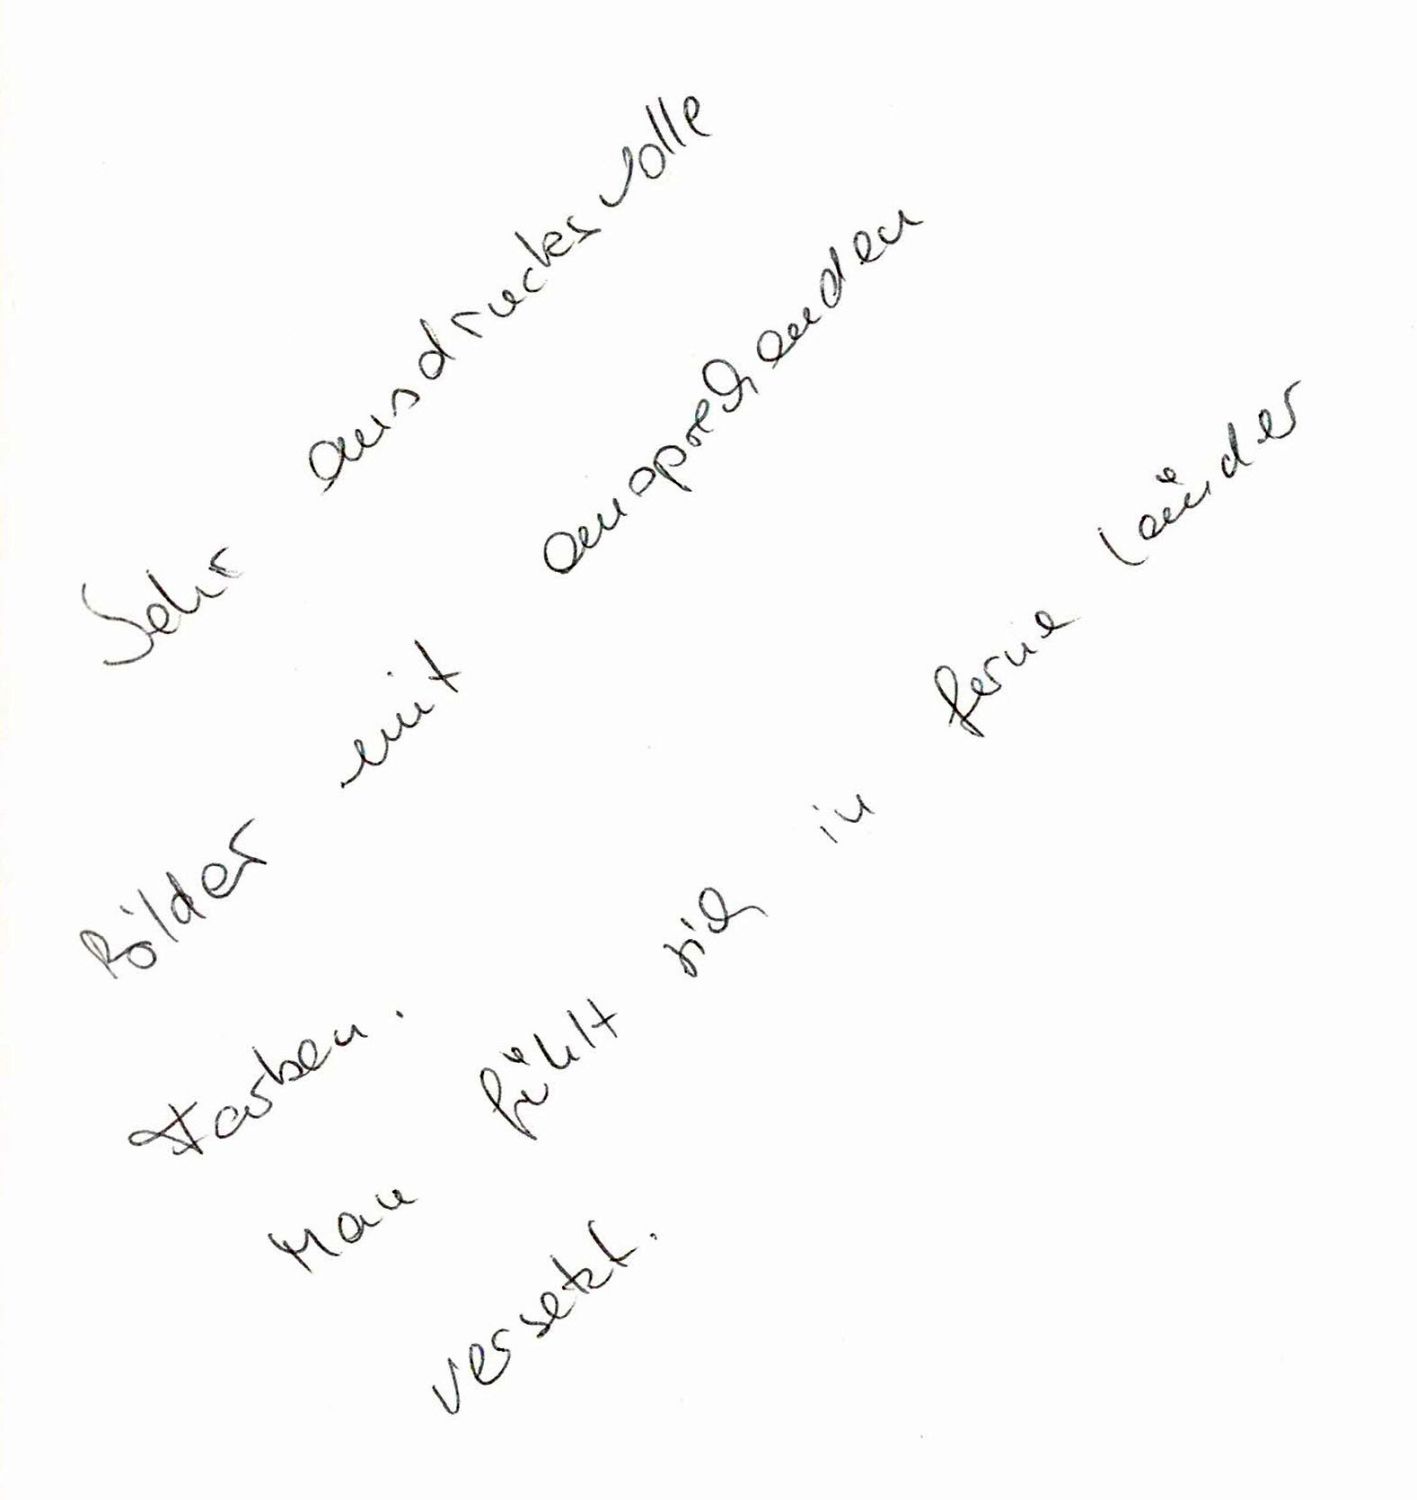 Sehr ausdrucksvolle
Bilder mit ansprechenden
Farben.
Man fühlt sich in ferne Länder
versetzt.